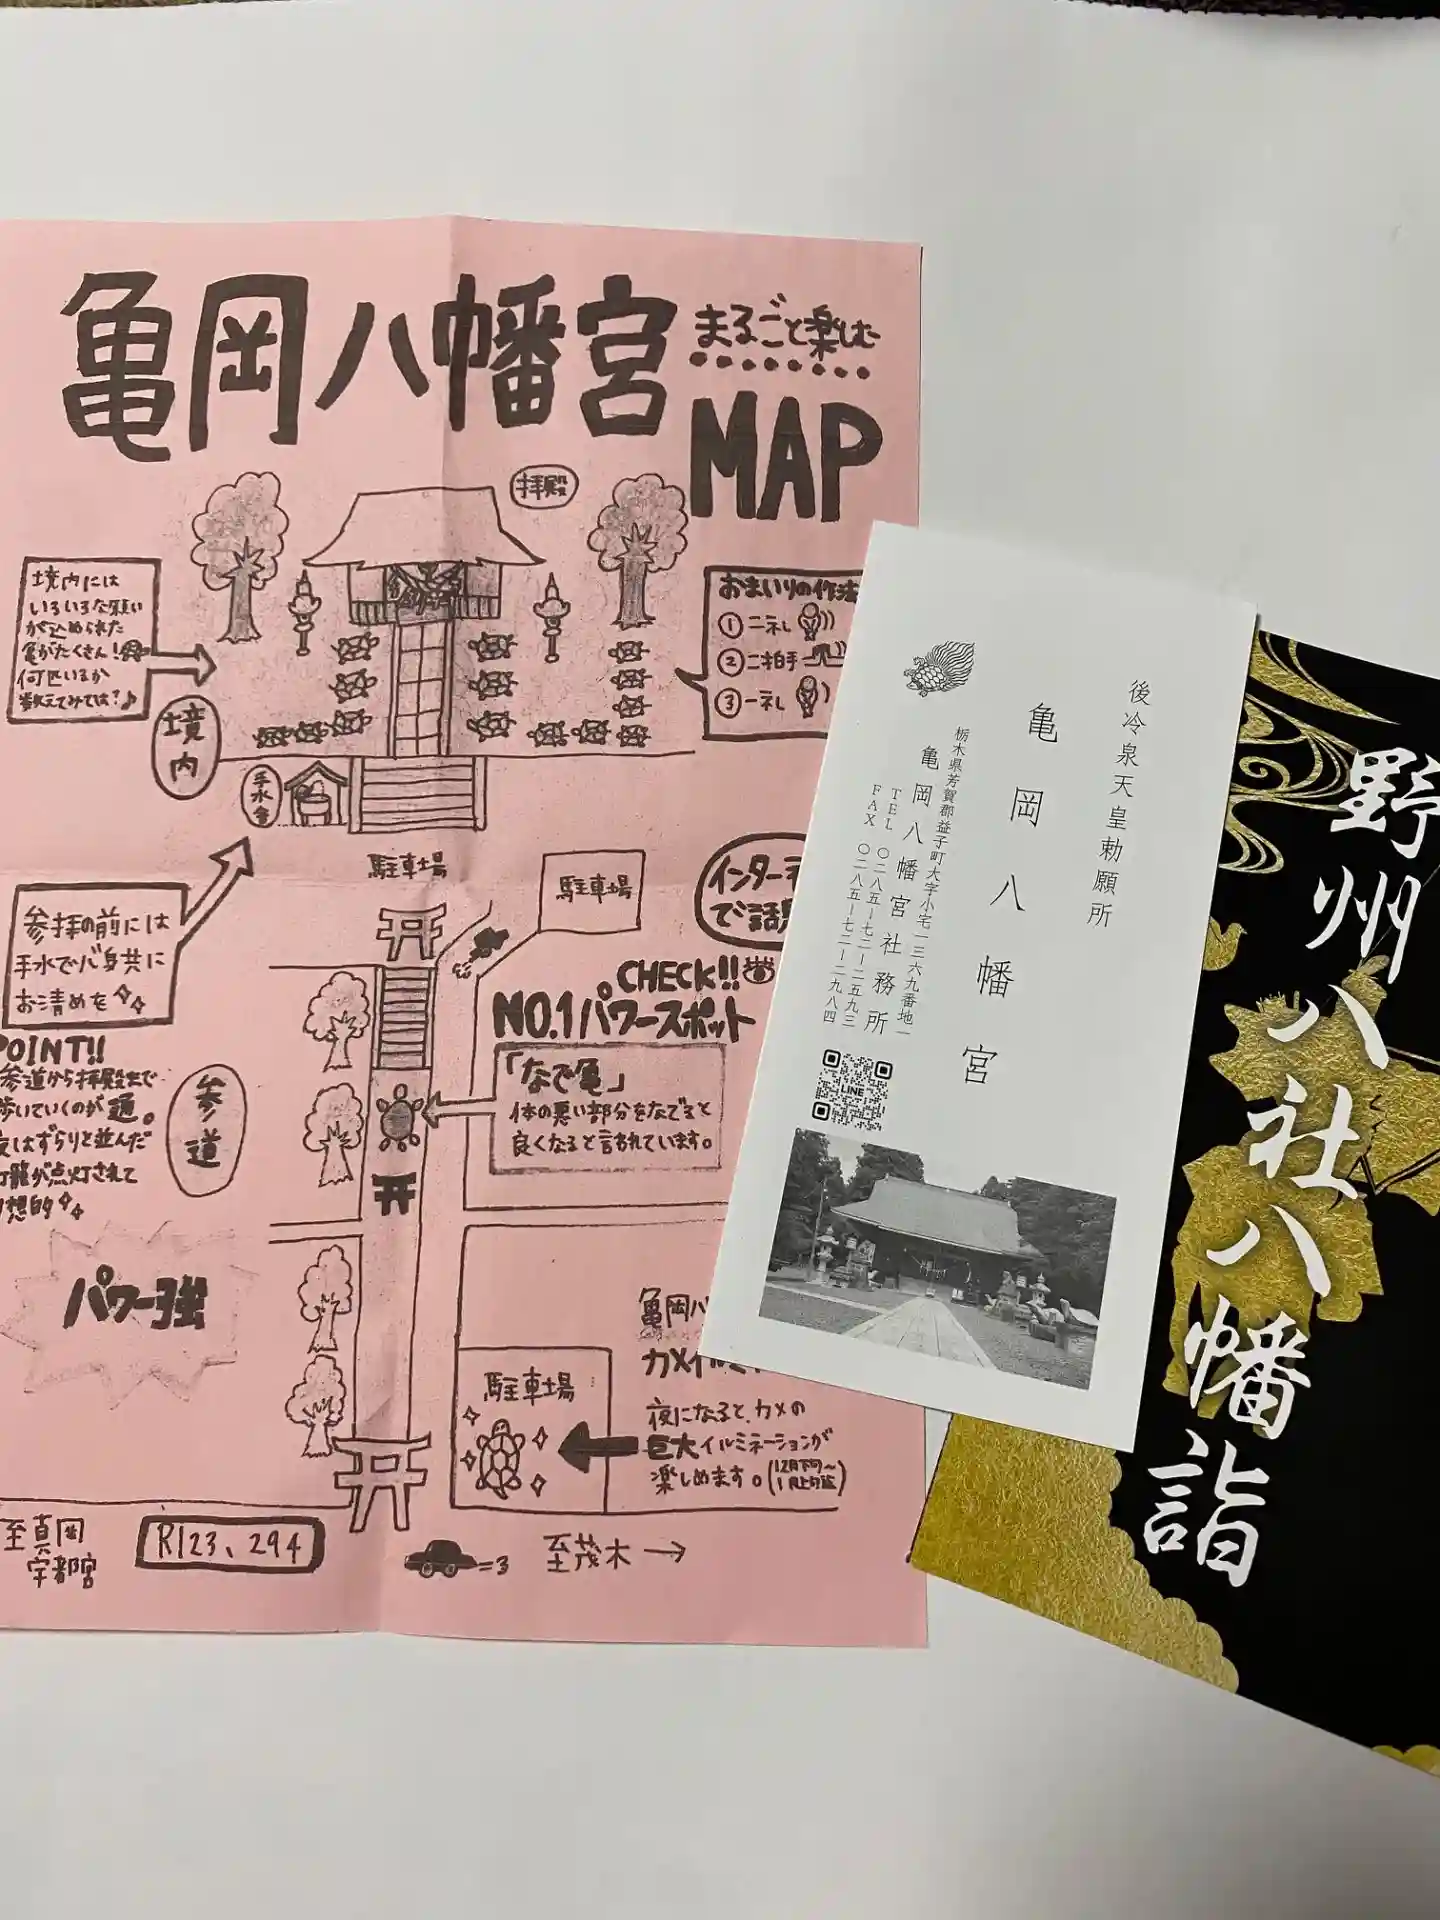 亀岡八幡宮
まるごと楽しむ
MAP
拝殿
境内には
いろいろな願い
が込められた
亀がたくさん!
何匹いるか
数えてみては?♪
境内
おまいりの作法
①二礼
②二拍手
③一礼
手水舎
駐車場
駐車場
参拝の前には
手水で心身共に
お清めを
インターネ
で話
CHECK!!
NO.1パワースポット
「なで亀」
体の悪い部分をなでると
良くなると言われています。
POINT!!
参道から拝殿まで
歩いていくのが 通。
夜はずらりと並んだ
灯籠が点灯されて
想的
参道
パワー強
亀岡八
カメイルミ
駐車場
夜になると、カメの
巨大イルミネーションが
楽しめます。(12月下旬〜
1月上旬迄)
至真岡
宇都宮
R123、294
=3
至茂木→
後冷泉天皇勅願所
亀岡八幡宮
栃木県芳賀郡益子町大字小宅一三六九番地一
亀岡八幡宮社務所
TEL 〇二八五ー七二ー二五九三
FAX 〇二八五ー七二ー二九八四
LINE
野州八社八幡詣